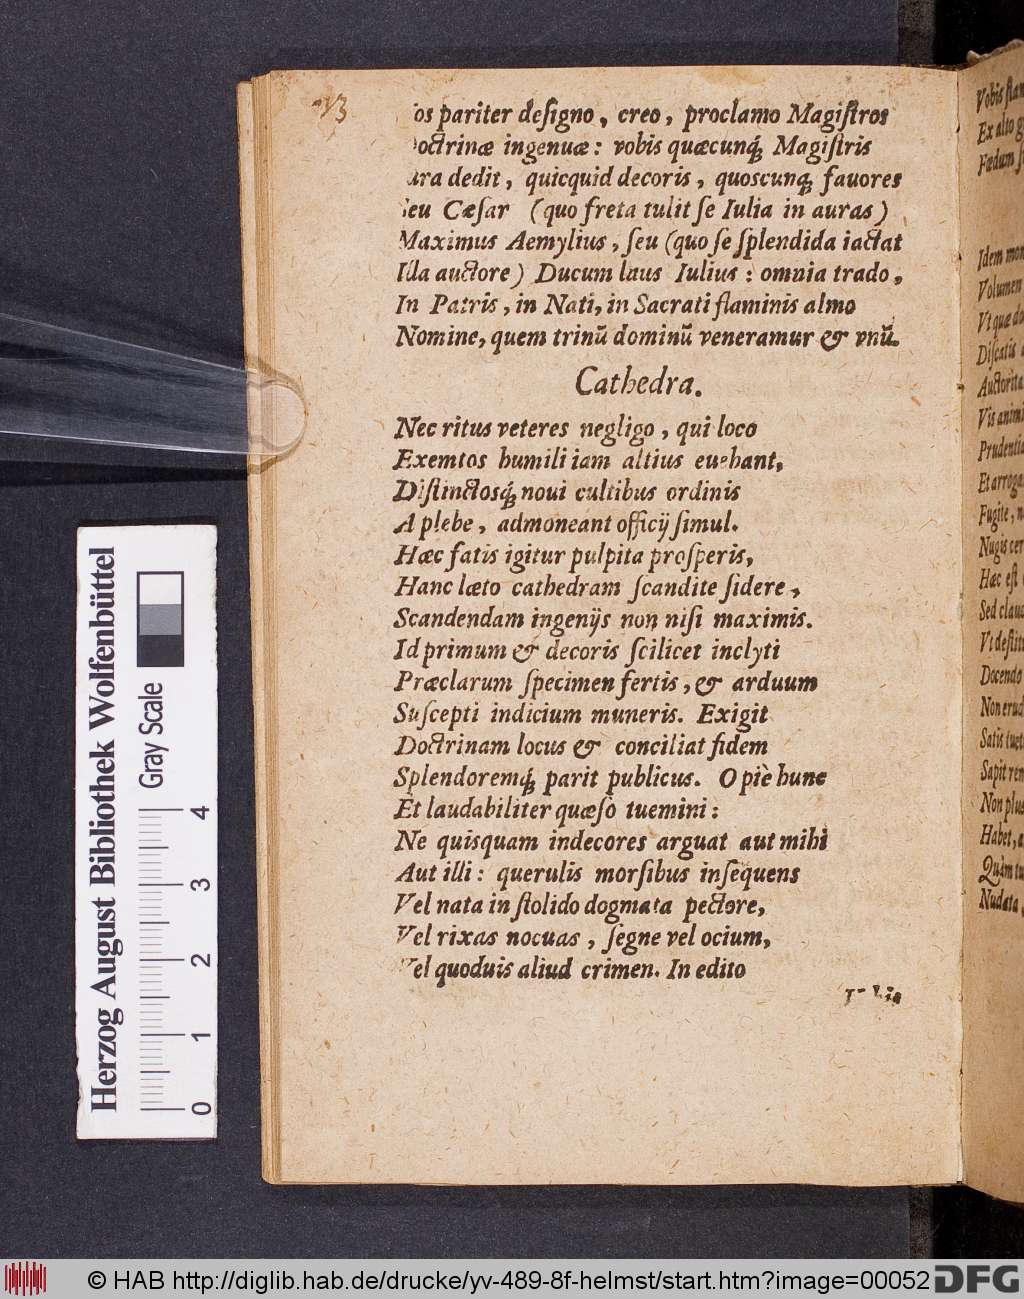 73
os pariter deſigno, creo, proclamo Magiſtros
octrinæ ingenuæ: vobis quæcunq́; Magiſtris
ura dedit, quicquid decoris, quoscunq; fauores
ſeu Cæſar (quo freta tulit ſe Iulia in auras)
Maximus Aemylius, ſeu (quo ſe ſplendida iactat
Illa auctore) Ducum laus Iulius: omnia trado,
In Patris, in Nati, in Sacrati flaminis almo
Nomine, quem trinũ dominũ veneramur & vnũ.
Cathedra.
Nec ritus veteres negligo, qui loco
Exemtos humili iam altius euehant,
Diſtinctosq́; noui cultibus ordinis
A plebe, admoneant officij ſimul.
Hæc fatis igitur pulpita proſperis,
Hanc læto cathedram ſcandite ſidere,
Scandendam ingenijs non niſi maximis.
Id primum & decoris ſcilicet inclyti
Præclarum ſpecimen fertis, & arduum
Suſcepti indicium muneris. Exigit
Doctrinam locus & conciliat fidem
Splendoremq́; parit publicus. O piè hunc
Et laudabiliter quæſò tuemini:
Ne quisquam indecores arguat aut mihi
Aut illi: querulis morſibus inſequens
Vel nata in ſtolido dogmata pectore,
Vel rixas nocuas, ſegne vel ocium,
Vel quoduis aliud crimen. In edito
Vobis
Ex alto
Fœdum
Idem
Volumen
Vt quæ
Diſcatis
Vis
Et
Fugite,
Nugis
Hæc eſt
Sed
Docendo
Satis
Sapit
Non
Habet,
Quàm
Nudata
Herzog August Bibliothek Wolfenbüttel
Gray Scale
0 1 2 3 4
© HAB http://diglib.hab.de/drucke/yv-489-8f-helmst/start.htm?image=00052
DFG